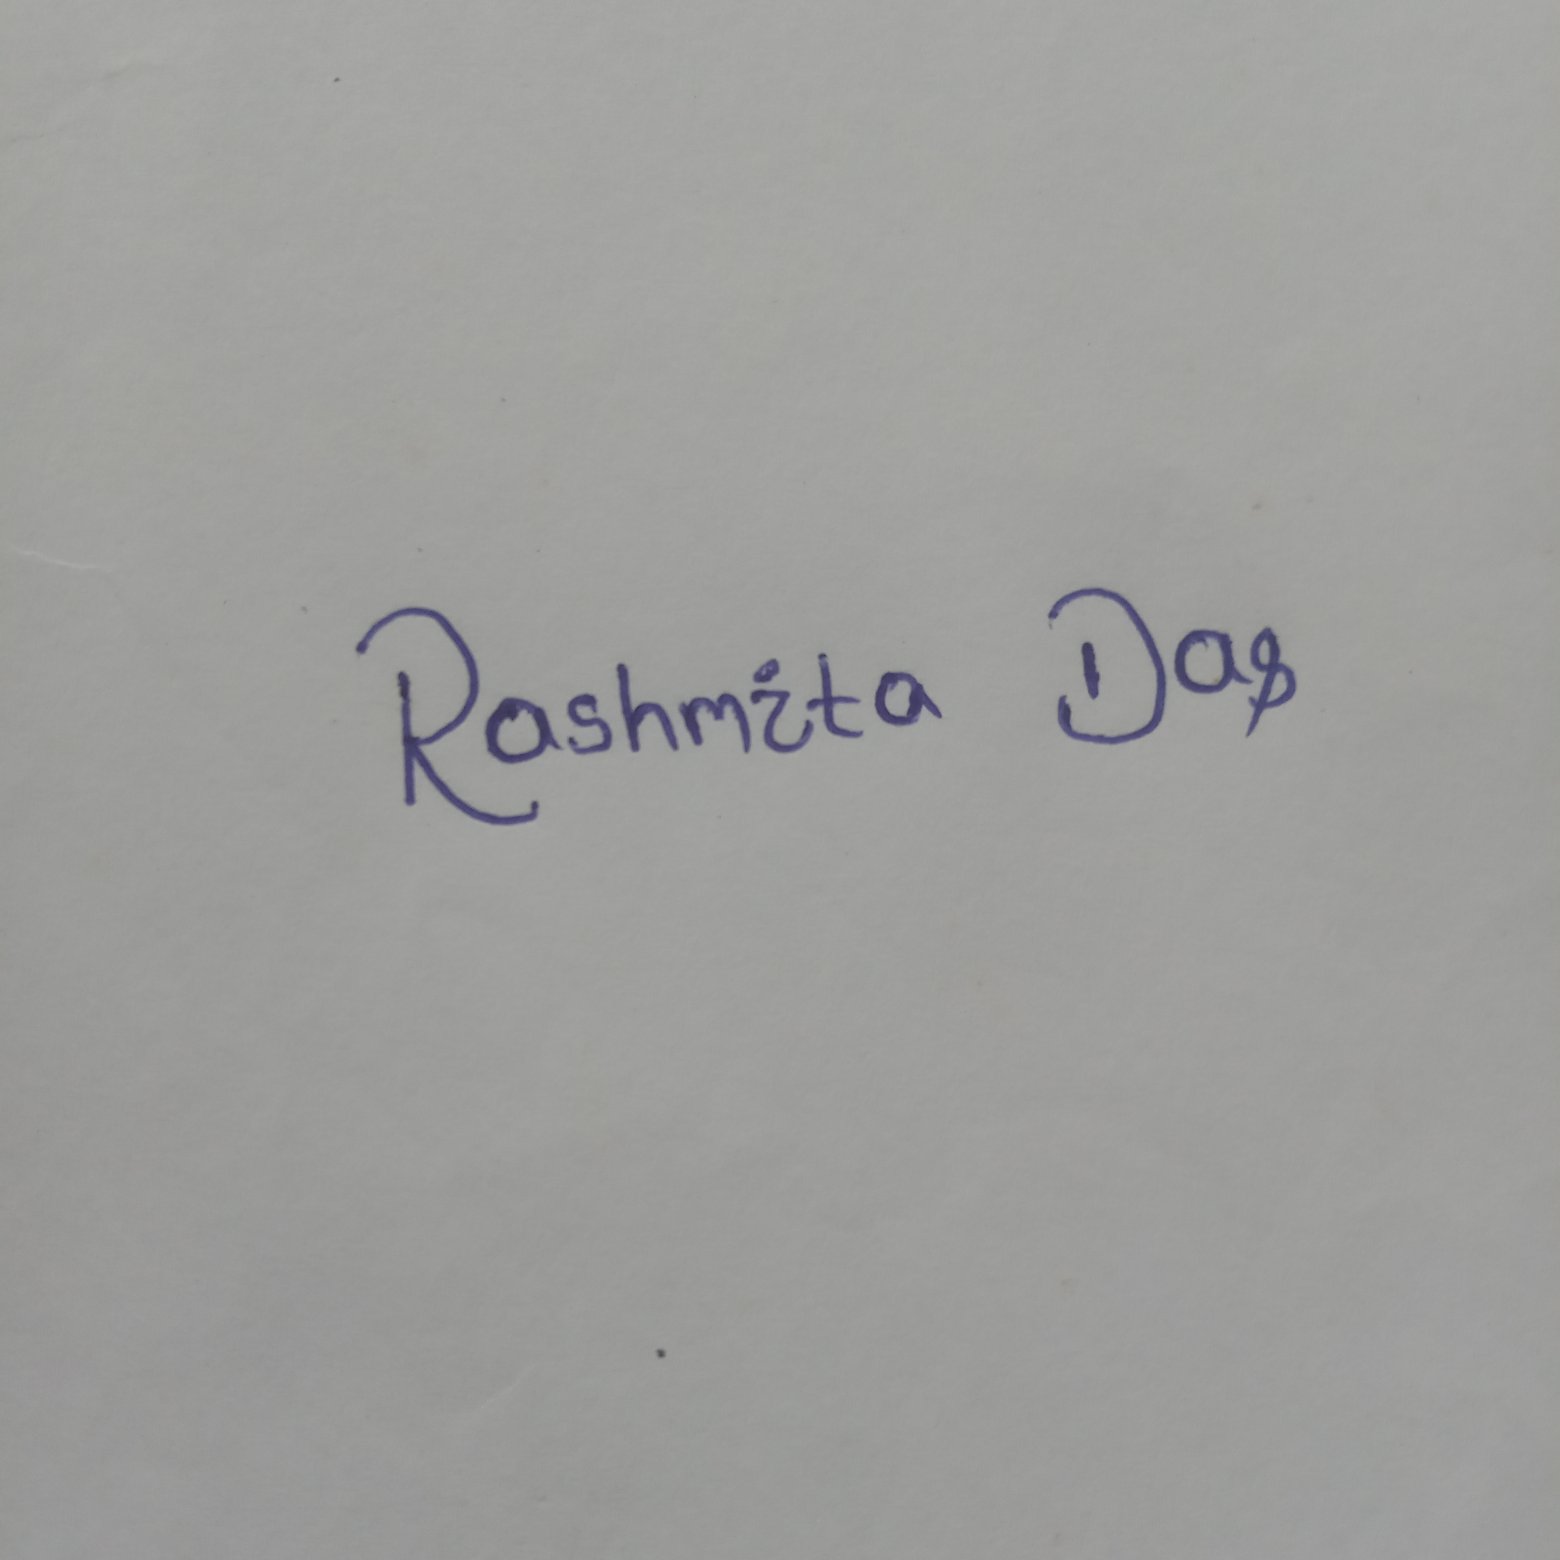 Rashmita Das